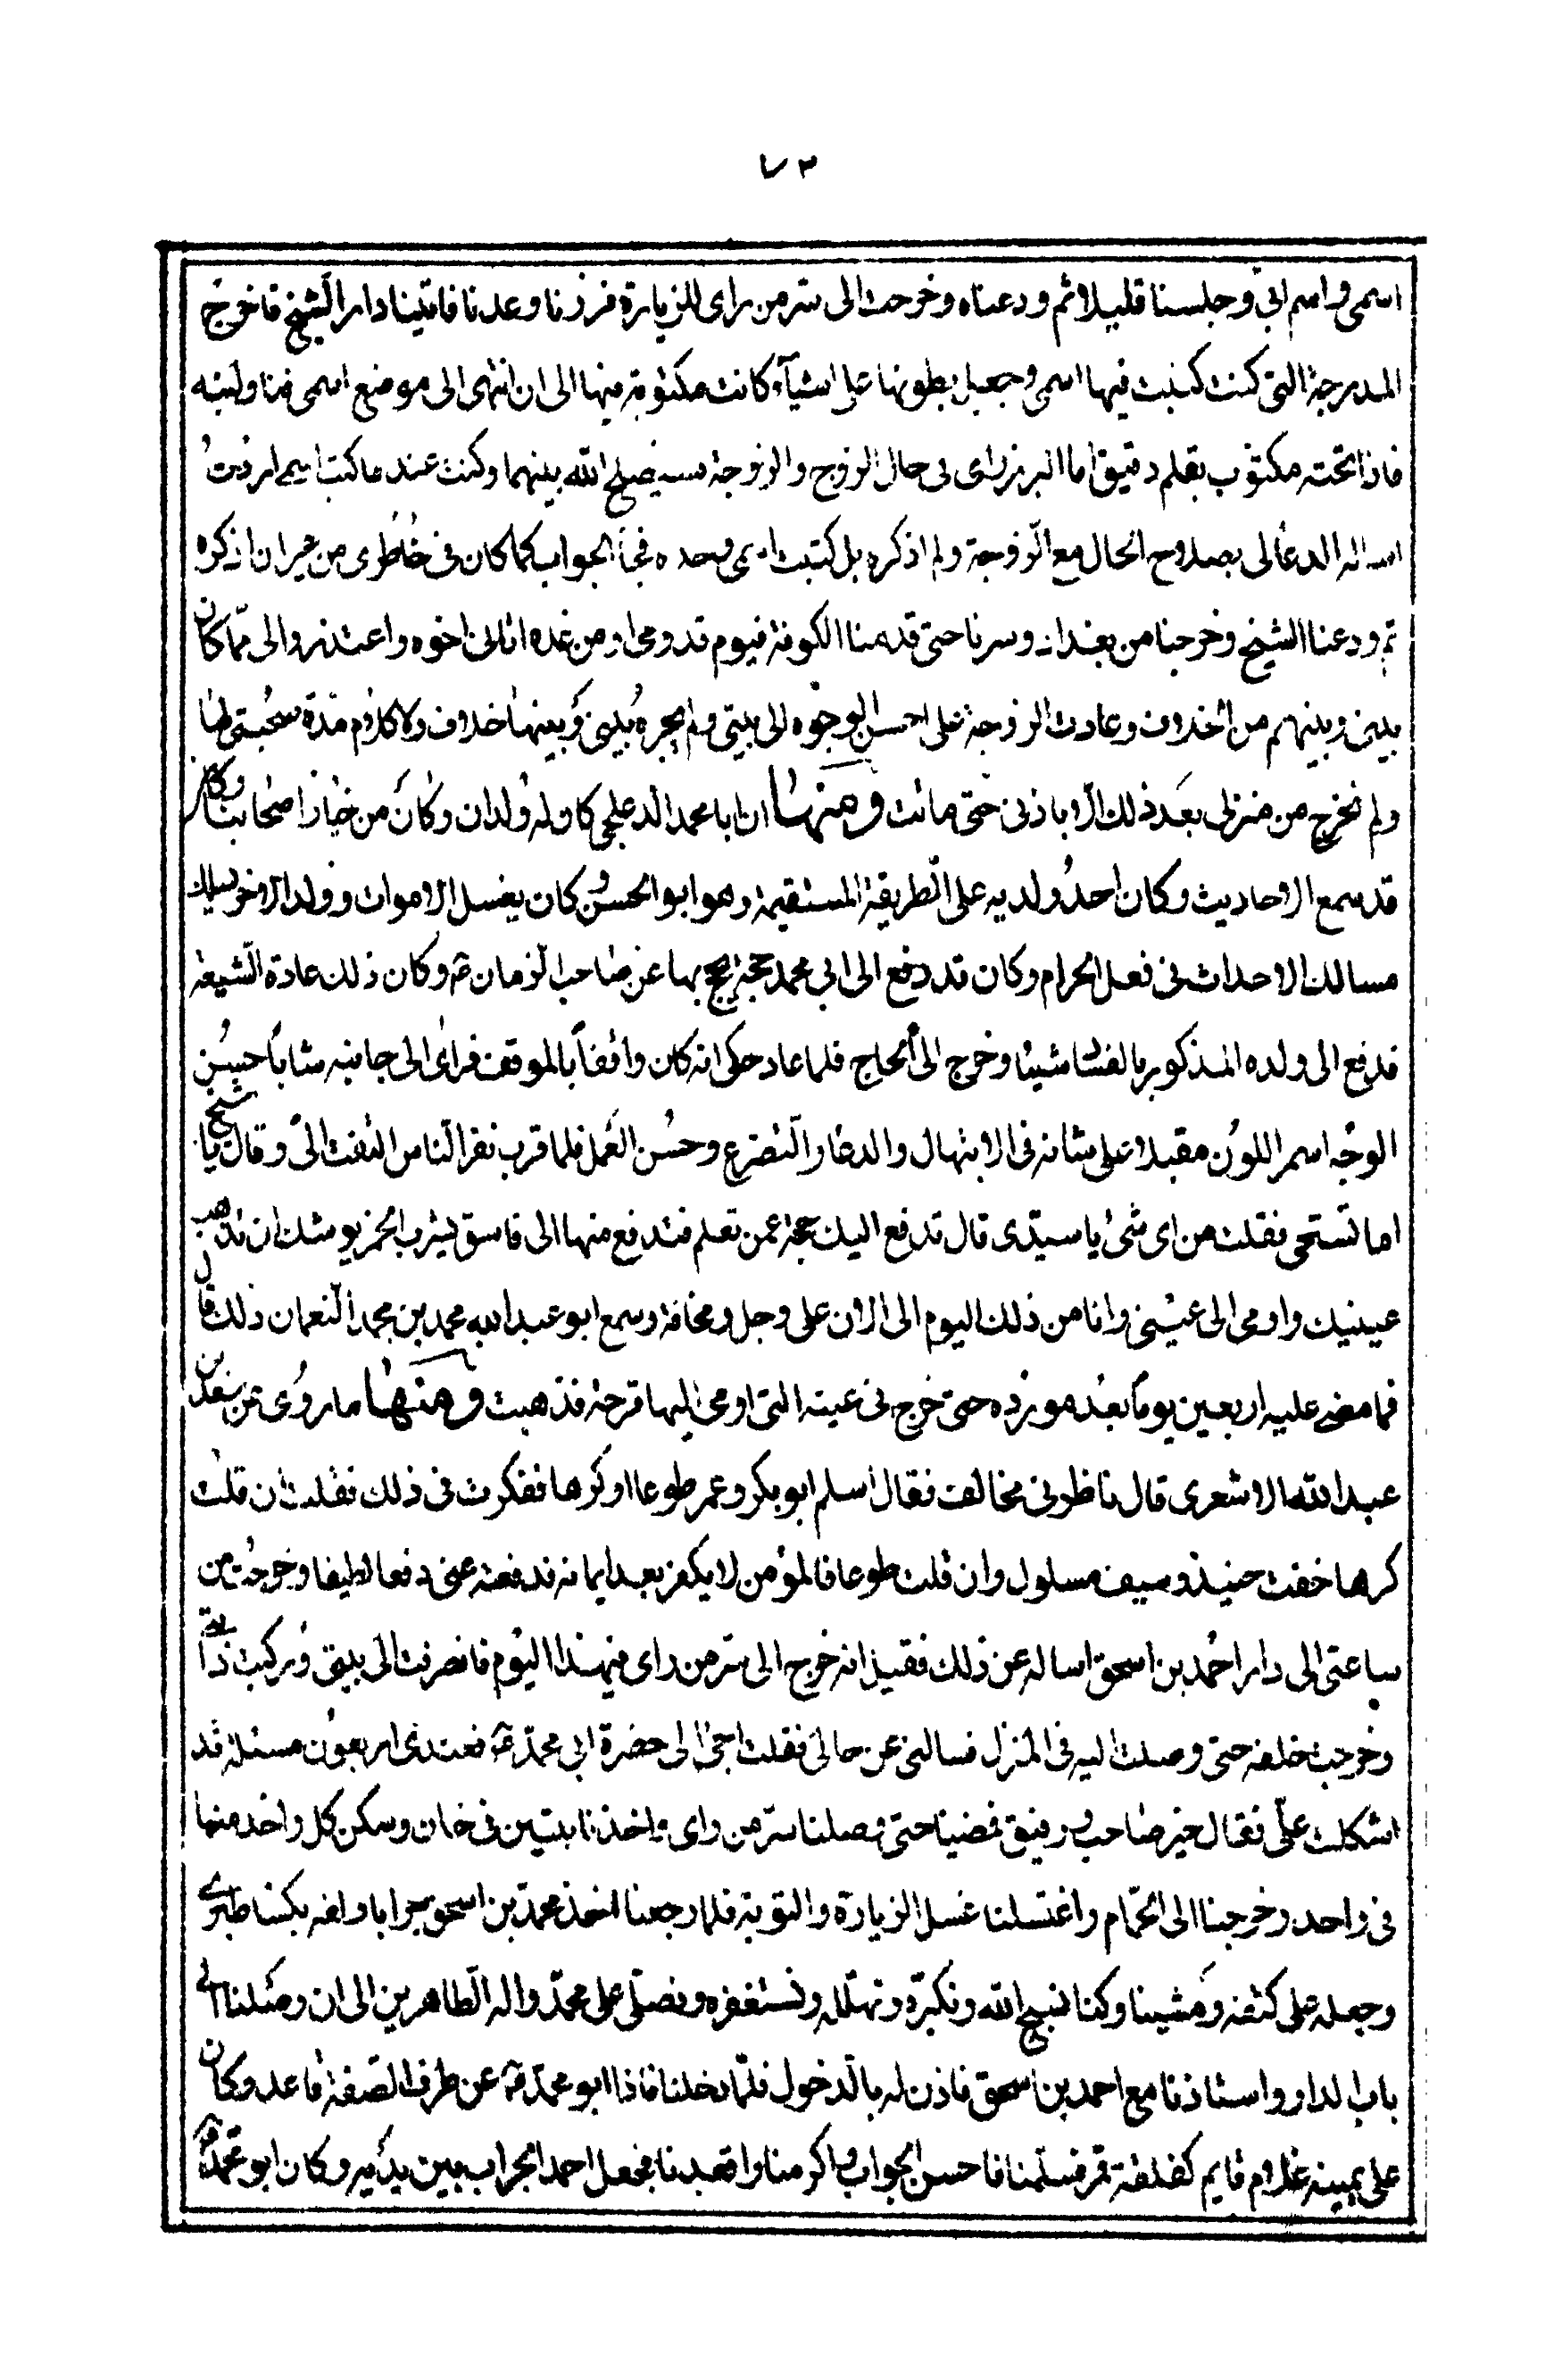 ٧٣
اسمى واسم ابى وجلسنا قليلا ثم ودعناه وخرجت الى سر من راى للزيارة فزرنا وعدنا فاتينا دار الشيخ فاخرج
المدرجة التى كنت كتبت فيها اسمى وجعل يطويها على اشيآء كانت مكتوبة فيها الى ان انتهى الى موضع اسمى فناولنيه
فاذا تحته مكتوب بقلم دقيق اما الزرارى فى حال الزوج والزوجة سيصلح الله بينهما وكنت عند ما كتبت اسمى اردت
اساله الدعا لى بصلاح الحال مع الزوجة ولم اذكره بل كتبت اسمى وحده فجآ الجواب كما كان فى خاطرى من غير ان اذكره
ثم ودعنا الشيخ وخرجنا من بغداد وسرنا حتى قدمنا الكوفة فيوم قدومى او من غده اتانى اخوه واعتذروا الى مما كان
بينى وبينهم من الخلاف وعادت الزوجة على احسن الوجوه الى بيتى ولم يجر بينى وبينها خلاف ولا كلام مدة صحبتى لها
ولم تخرج من منزلى بعد ذلك الا باذنى حتى ماتت ومنها ان ابا محمد الدعلجى كان له ولدان وكان من خيار اصحابنا وكان
قد سمع الاحاديث وكان احد ولديه على الطريقة المستقيمة وهو ابو الحسن كان يغسل الاموات وولد الاخر يسلك
مسالك الاحداث فى فعل الحرام وكان قد دفع الى ابى محمد حجة يحج بها عن صاحب الزمان ع وكان ذلك عادة الشيعة
فدفع الى ولده المذكور بالفساد شيئا وخرج الى الحاج فلما عاد حكى انه كان واقفاً بالموقف فراى الى جانبه شابا حسن
الوجه اسمر اللون مقبلا على شانه فى الابتهال والدعا والتضرع وحسن العمل فلما قرب نفر الناس التفت الى وقال يا شيخ
اما تستحى فقلت من اى شئ يا سيدى قال تدفع اليك حجة عمن تعلم فتدفع منها الى فاسق يشرب الخمر يوشك ان تذهب
عينيك واومى الى عينى وانا من ذلك اليوم الى الان على وجل ومخافة وسمع ابو عبد الله محمد بن محمد النعمان ذلك قال
فما مضى عليه اربعين يوما بعد مورده حتى خرج فى عينه التى اومى اليها قرحة فذهبت ومنها ما روى عن سعد بن
عبد الله الاشعرى قال ناظرنى مخالف فقال اسلم ابو بكر وعمر طوعا او كرها ففكرت فى ذلك فقلت ان قلت
كرها خفت حينئذ وسيف مسلول وان قلت طوعا فالمؤمن لا يكفر بعد ايمانه فدفعته عنى دفعا لطيفا وخرجت من
ساعتى الى دار احمد بن اسحق اساله عن ذلك فقيل انه خرج الى سر من راى فى هذا اليوم فانصرفت الى بيتى وركبت دابتى
وخرجت خلفه حتى وصلت اليه فى المنزل فسالنى عن حالى فقلت اجئ الى حضرة ابى محمد ع فعندى اربعون مسئلة قد
اشكلت على فقال خير صاحب ورفيق فمضينا حتى وصلنا سر من راى واخذنا بيتين فى خان وسكن كل واحد منها
فى واحد وخرجنا الى الحمام واغتسلنا غسل الزيارة والتوبة فلما رجعنا اخذ محمد بن اسحق جرابا ولفه بكسا طبرى
وجعله على كتفه ومشينا وكنا نسبح الله ونكبره ونهلله ونستغفره ونصلى على محمد واله الطاهرين الى ان وصلنا الى
باب الدار واستاذنا مع احمد بن اسحق فاذن له بالدخول فلما دخلنا فاذا ابو محمد ع عن طرف الصفة قاعد وكان
على يمينه غلام قايم كفلقة قمر فسلمنا فاحسن الجواب واكرمنا واقعدنا فجعل احمد الجراب بين يديه وكان ابو محمد ع